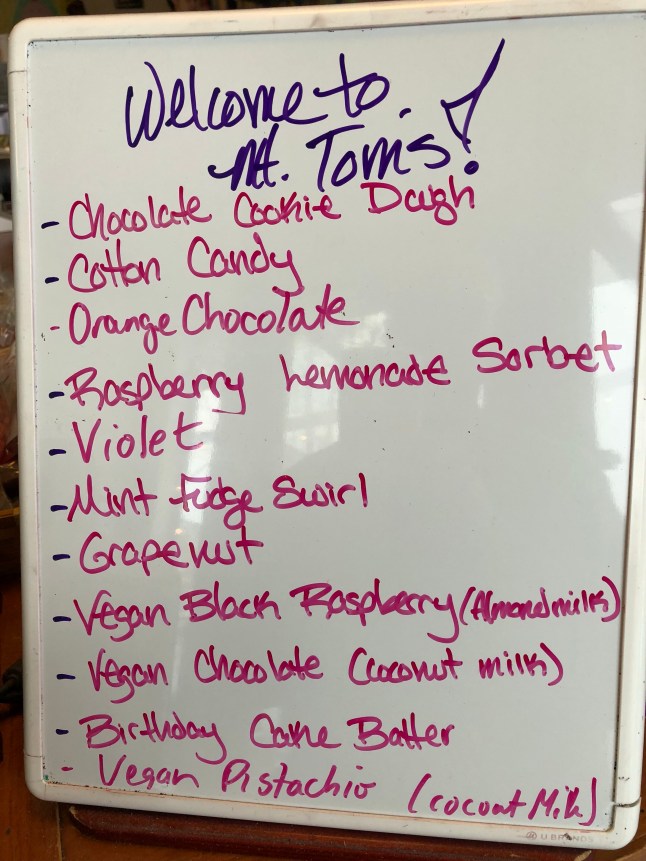 Welcome to
Mt. Toms!
- Chocolate Cookie Dough
- Cotton Candy
- Orange Chocolate
- Raspberry Lemonade Sorbet
- Violet
- Mint Fudge Swirl
- Grapenut
- Vegan Black Raspberry (Almond milk)
- Vegan Chocolate (coconut milk)
- Birthday Cake Batter
- Vegan Pistachio (cocount Milk)
U BRANDS